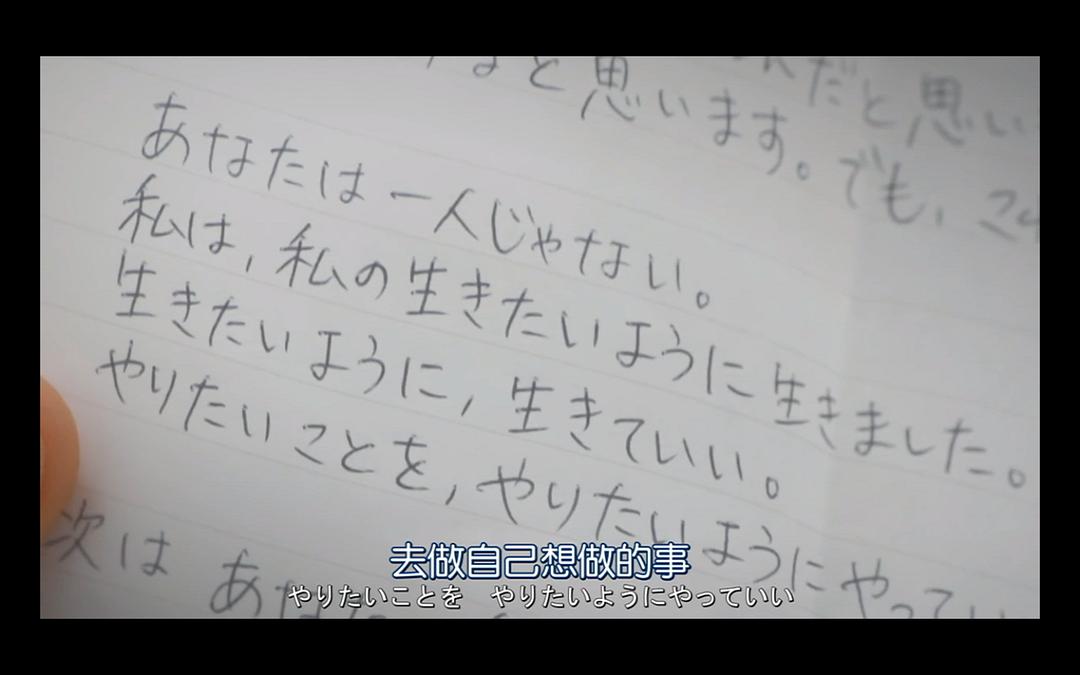 なと思います。でも、
だと思い
あなたは一人じゃない。
私は、私の生きたいように生きました。
生きたいように、生きていい。
やりたいことを、やりたいようにやってい
次は あな
去做自己想做的事
やりたいことを やりたいようにやっていい